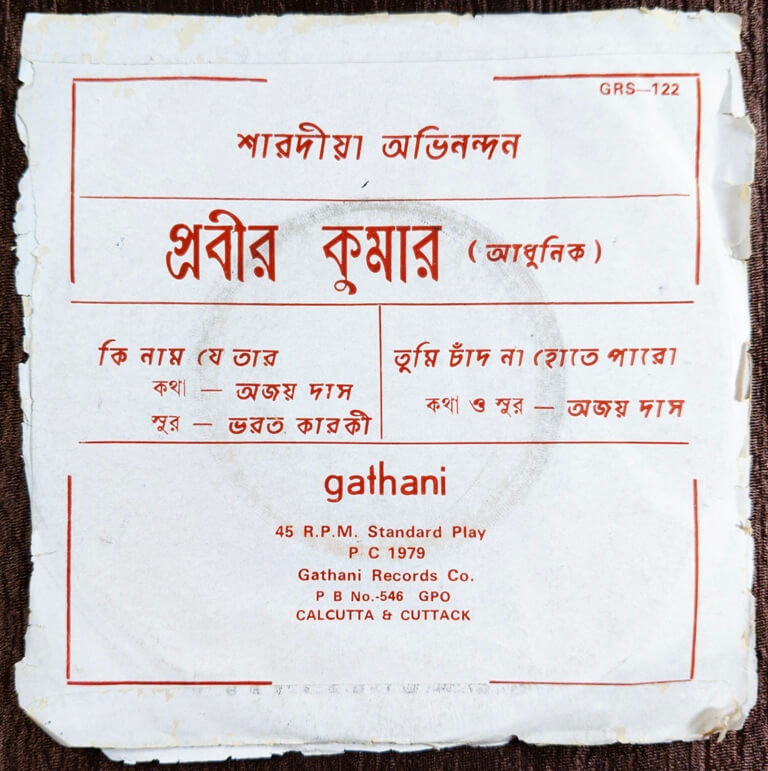 GRS—122
শারদীয়া অভিনন্দন
প্রবীর কুমার (আধুনিক)
কি নাম যে তার
কথা — অজয় দাস
সুর — ভরত কারকী
তুমি চাঁদ না হোতে পারো
কথা ও সুর — অজয় দাস
gathani
45 R.P.M. Standard Play
P C 1979
Gathani Records Co.
P B No.-546 GPO
CALCUTTA & CUTTACK